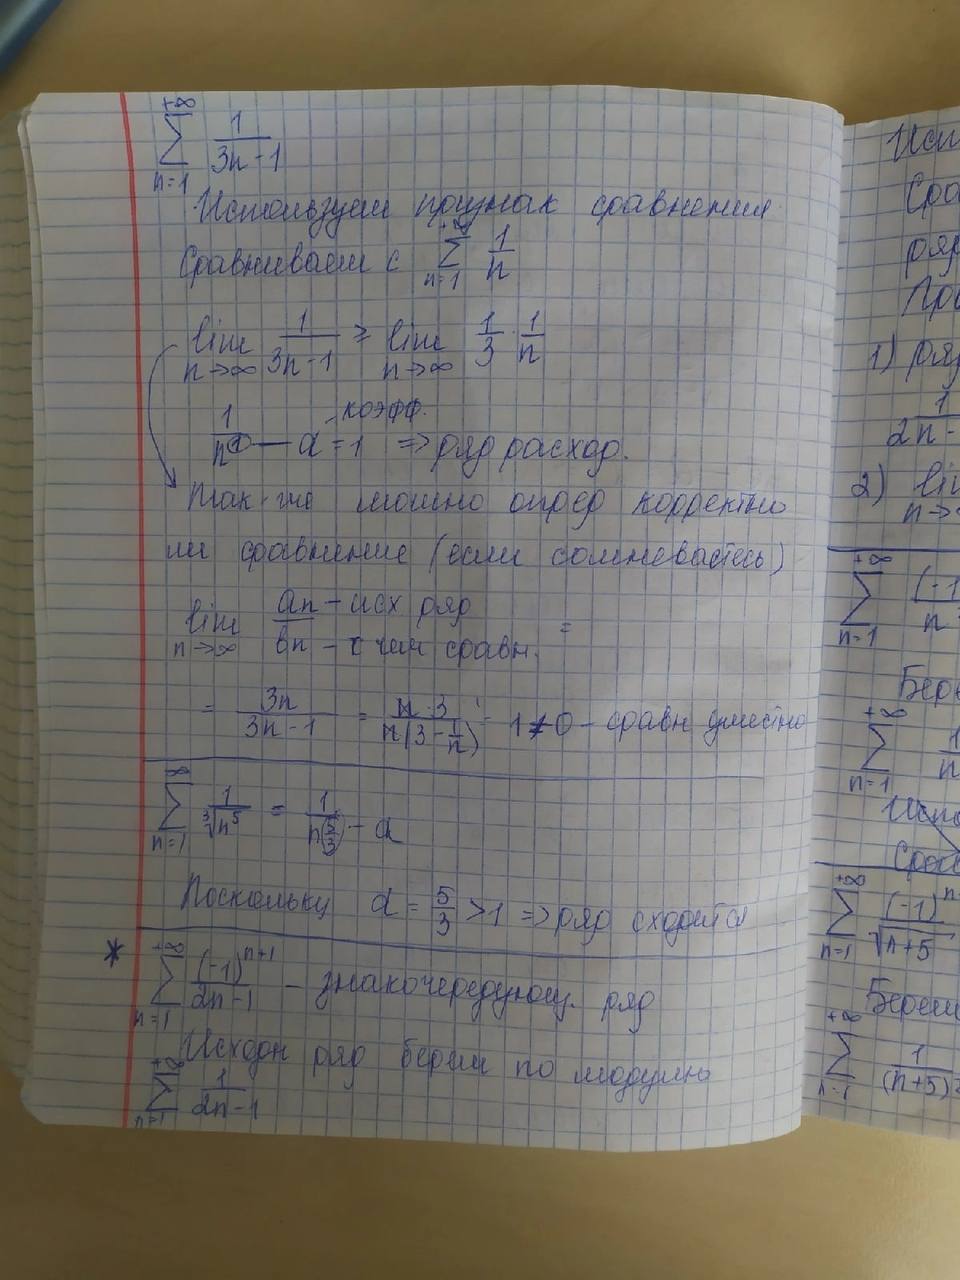 +∞
∑ 1/(3n-1)
n=1
Используем признак сравнения
Сравниваем с ∑ (n=1, +∞) 1/n
lim n→∞ 1/(3n-1) ≥ lim n→∞ 1/3 · 1/n
1/n^α — α = 1 коэфф. => ряд расход.
также можно опред корректно
ли сравнение (если сомневаетесь)
lim n→∞ an/bn = an - исх ряд
bn - с чем сравн.
= 3n/(3n-1) = n·3/(n(3-1/n)) = 1 ≠ 0 - сравн уместно
∑ (n=1, ∞) 1/∛n⁵ = 1/n^(5/3) - α
Поскольку α = 5/3 > 1 => ряд сходится
* ∑ (n=1, +∞) (-1)^(n+1)/(2n-1) - знакочередующ. ряд
Исходн ряд берем по модулю
∑ (n=1, +∞) 1/(2n-1)
Исп
Сра
ряд
1) ряд
1/2n-
2) lim
n→∞
∑ (n=1, +∞) (-1)/n
Бер
∑ (n=1, +∞) 1/n
Испо
Срав
∑ (n=1, +∞) (-1)^n/√n+5
Берем
∑ (n=1, +∞) 1/(n+5)